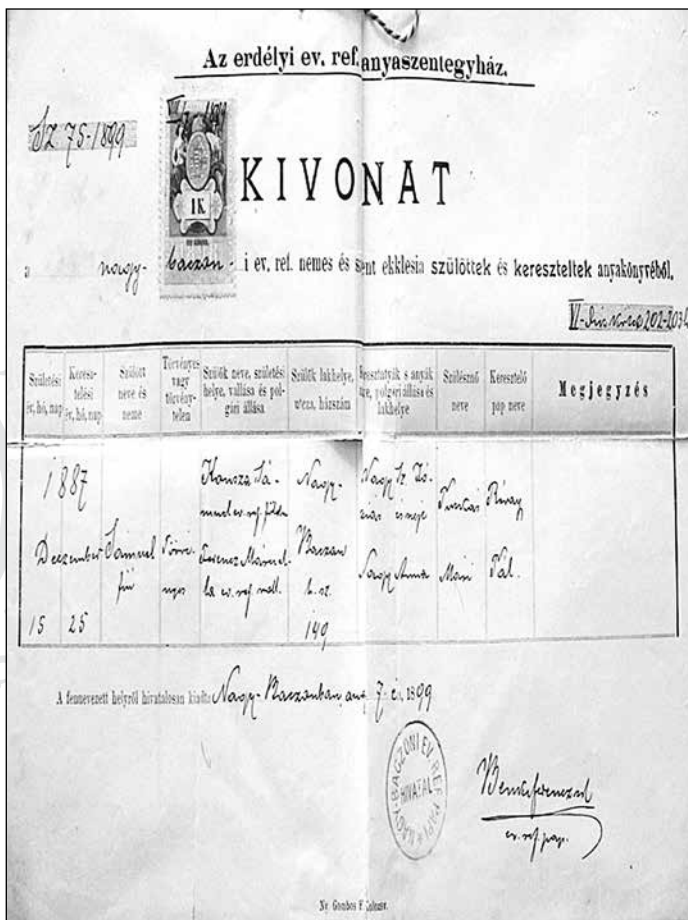 Az erdélyi ev. ref. anyaszentegyház.
Sz. 75-1899
1K
KIVONAT
a nagy-baczon-i ev. ref. nemes és szent ekklesia szülöttek és kereszteltek anyakönyvéből.
VI 202-203
Születési év, hó, nap
Keresztelési év, hó, nap
Szülött neve és neme
Törvényes vagy törvénytelen
Szülők neve, születési helye, vallása és polgári állása
Szülők lakhelye, utcza, házszám
Keresztatyák s anyák neve, polgári állása és lakhelye
Szülésznő neve
Keresztelő pap neve
Megjegyzés
1887 Konsza Sá- Nagy- Nagy Sz. Jó-
muel ev. ref. földm zsiás és neje Puskás Révay
Deczember Sámuel Törvé- Ferencz Máred- Baczon Nagy Anna Mári Pál.
fiú nyes ev. ref. vall. h. sz.
15 25 149
A fennevezett helyről hivatalosan kiadta Nagy-Baczonban, 7-én, 1899
NAGY-BACZONI EV. REF. PAPI HIVATAL
Benkő Ferencz
ev. ref. pap.
Ny. Gombos F. Kolozsv.